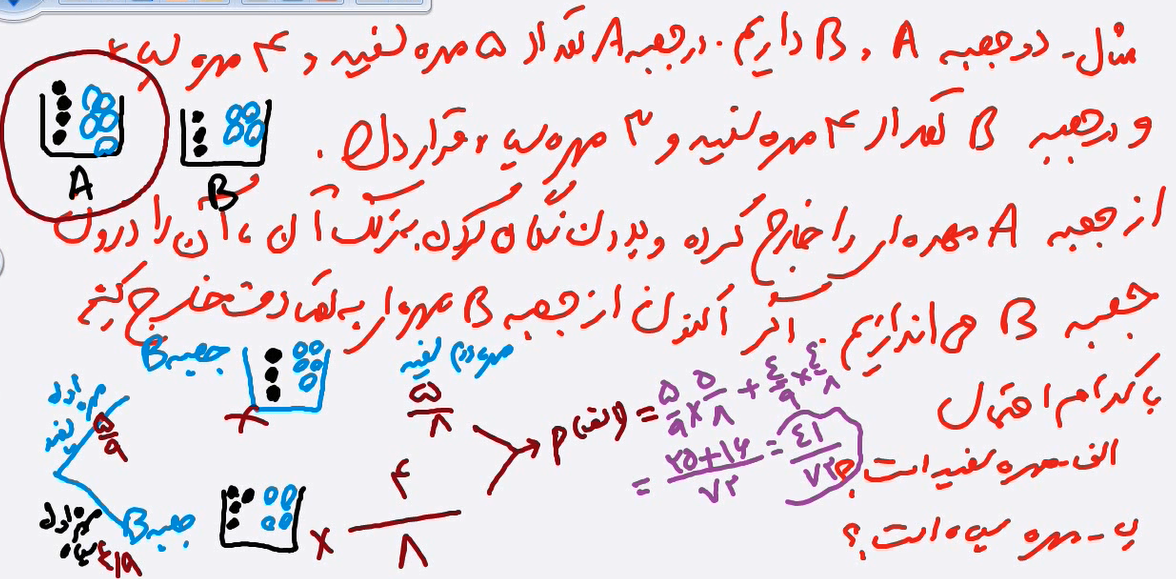 مثال- دو جعبه A و B داریم. در جعبه A تعداد ۵ مهره سفید و ۴ مهره سیاه
و در جعبه B تعداد ۴ مهره سفید و ۳ مهره سیاه قرار دارد.
از جعبه A مهره ای را خارج کرده و بدون نگاه کردن به رنگ آن، آن را درون
جعبه B می اندازیم. اگر اکنون از جعبه B مهره ای به تصادف خارج کنیم
با کدام احتمال
الف- مهره سفید است؟
ب- مهره سیاه است؟
A
B
مهره اول سفید
۵/۹
جعبه B
×
مهره دوم سفید
۵/۸
مهره اول سیاه
۴/۹
جعبه B
×
۴/۸
P(الف) = ۵/۹ × ۵/۸ + ۴/۹ × ۴/۸
= ۲۵+۱۶/۷۲ = ۴۱/۷۲